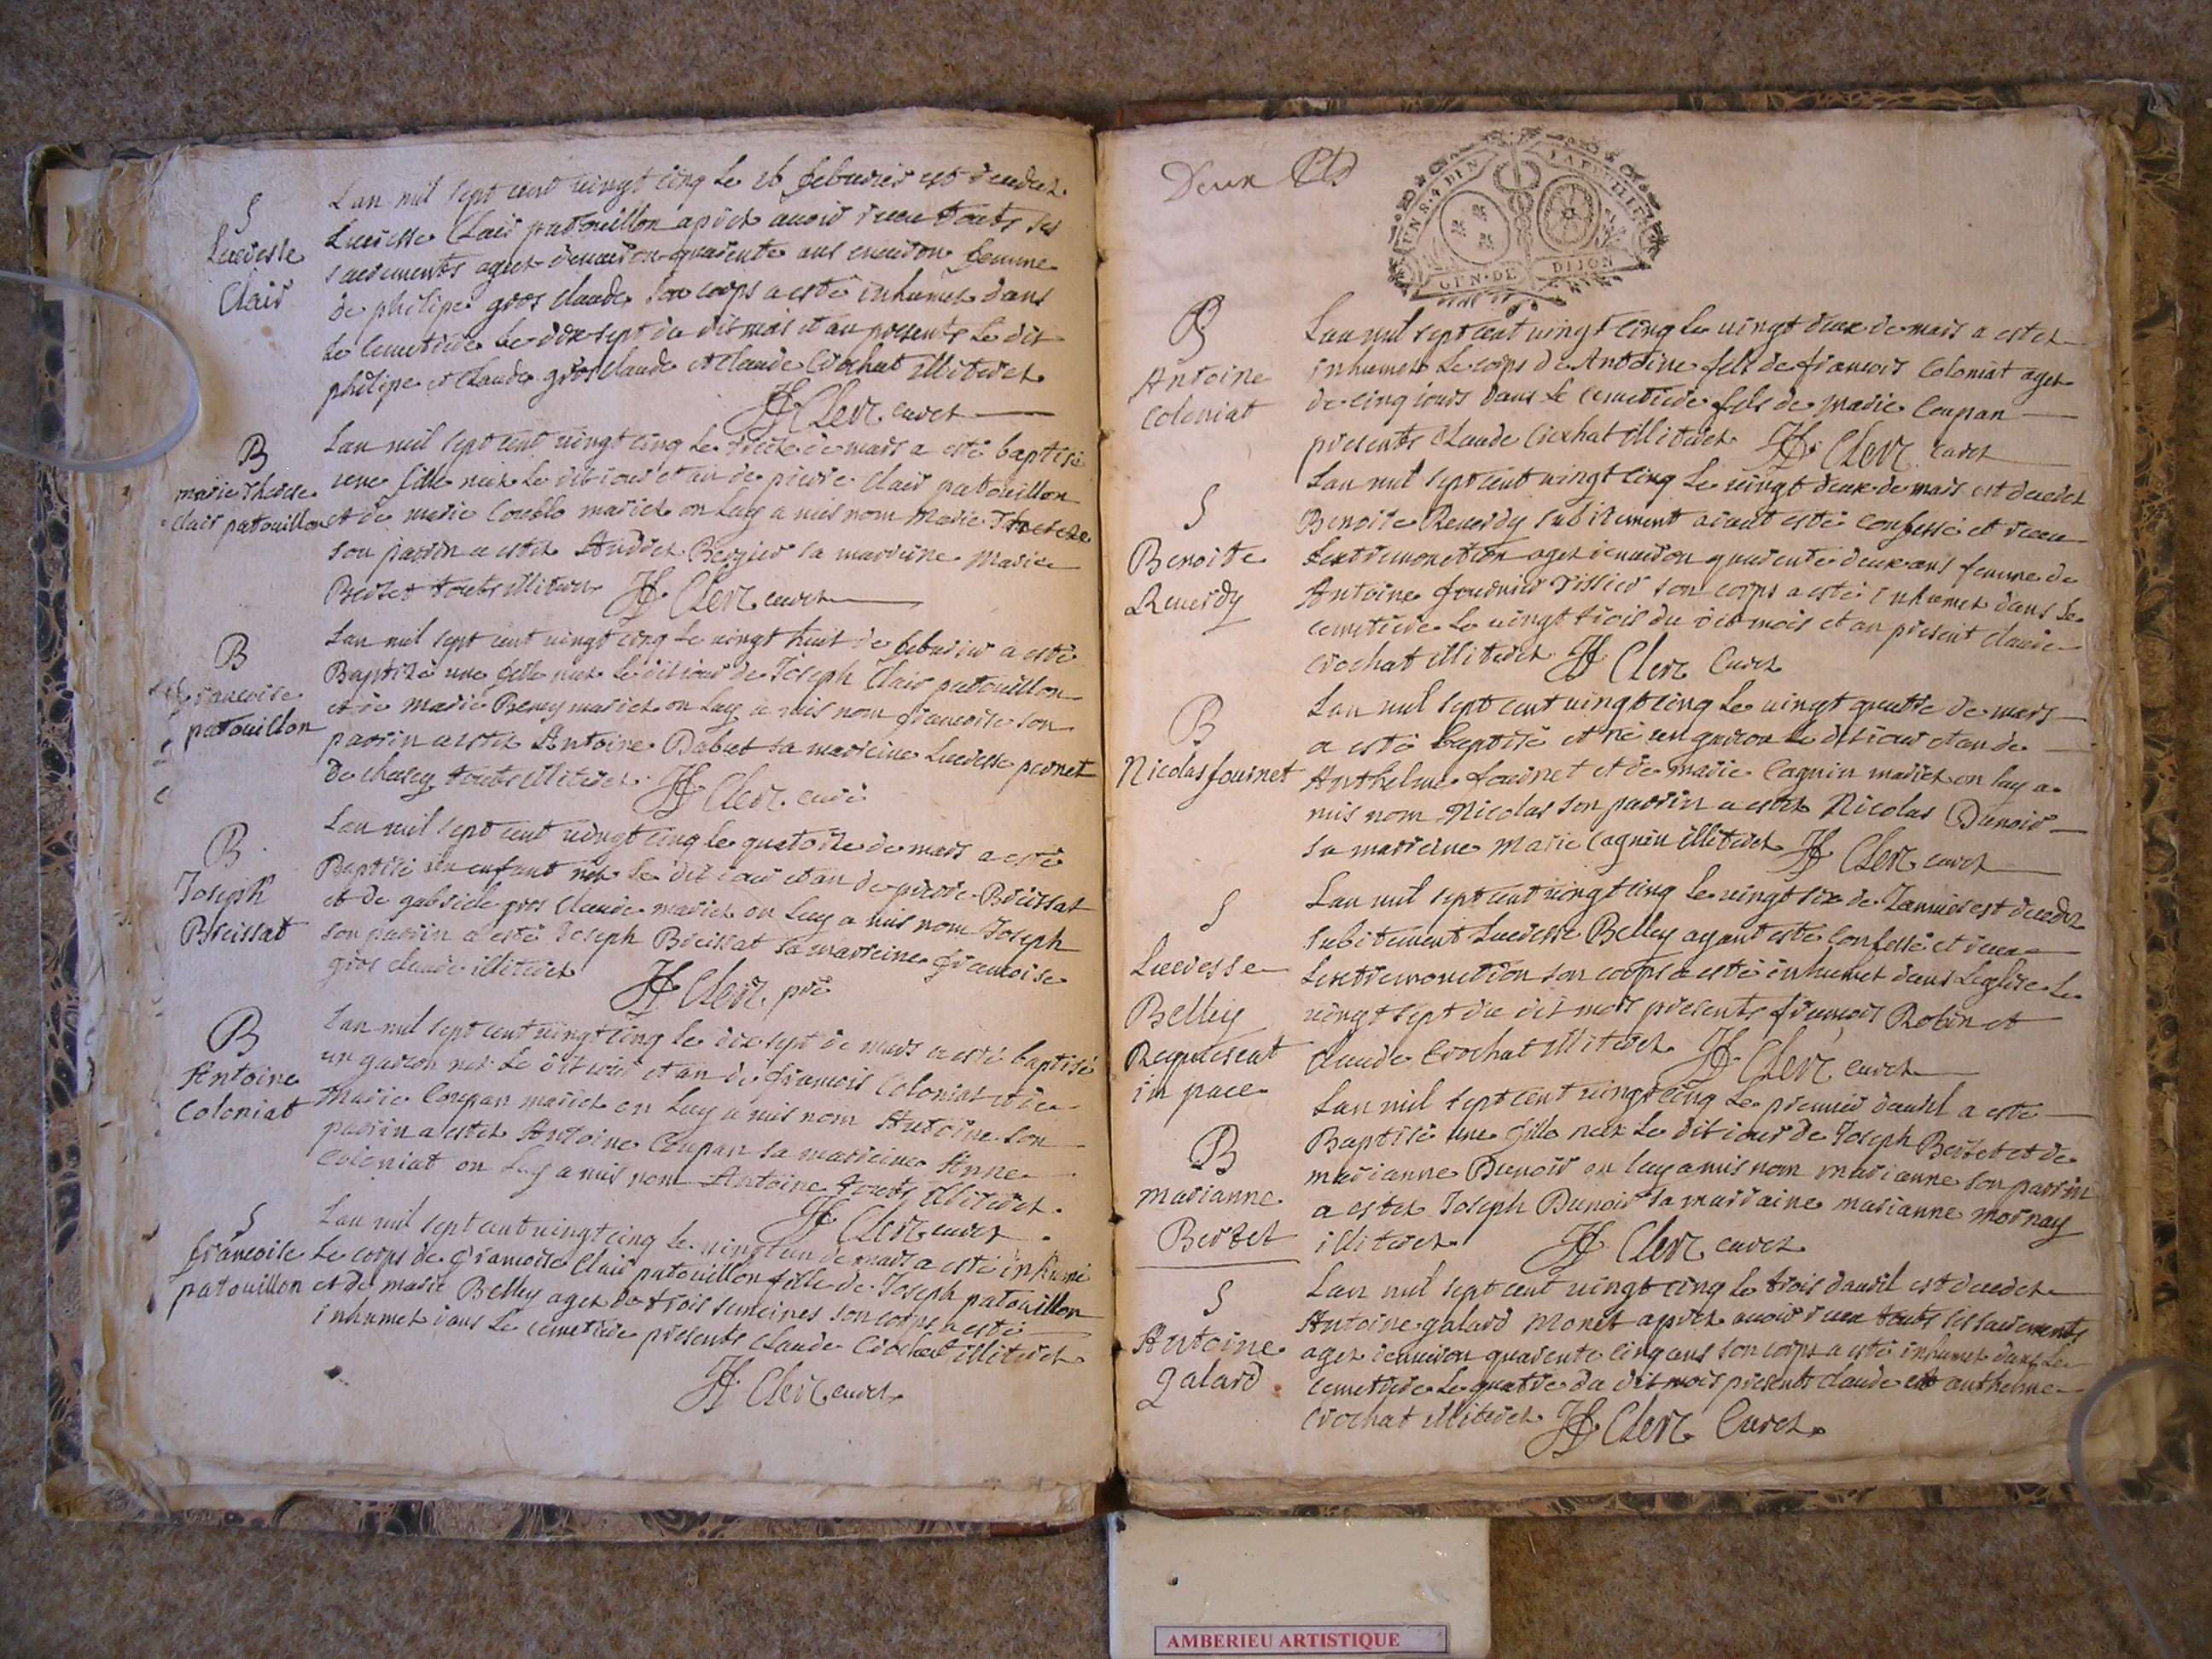 S
Lucresse
Clair
Lan mil sept cent vingt cinq le 16 febvrier est decedez
Lucresse Clair patouillon aprez avoir receu touts ses
sacrements agez denviron quarente ans environ femme
de philipe gros claude son corps a esté inhumez dans
le cemetiere le dix sept du dit mois et an presents le dit
philipe et Claude gros claude et claude Crochat illiterez
JF Clerc curez
B
marie Therese
clair patouillon
Lan mil sept cent vingt cinq le treize de mars a esté baptisé
une fille néez le dit jour et an de pierre Clair patouillon
et de marie mariez on luy a mis nom Marie Therese
son parrin a estez Andrez Bergier sa marreine Marie
Berzet touts illiterez JF Clerc curez
B
francoise
patouillon
Lan mil sept cent vingt cinq le vingt huit de febvrier a esté
Baptisé une fille néez le dit jour de Joseph Clair patouillon
et de marie mariez on luy a mis nom francoise son
parrin a estez Antoine Dabat sa marreine Lucresse pernet
de touts illiterez JF Clerc curé
B
Joseph
Breissat
Lan mil sept cent vingt cinq le quatorze de mars a esté
Baptisé un enfant néz le dit jour et an de pierre Breissat
et de gabriele gros claude mariez on luy a mis nom Joseph
son parrin a esté Joseph Breissat sa marreine francoise
gros claude illiterez JF Clerc pré
B
Antoine
Coloniat
Lan mil sept cent vingt cinq le dix sept de mars a esté baptisé
un garcon néz le dit jour et an de francois Coloniat et de
Marie Coupan mariez on luy a mis nom Antoine son
parrin a estez Antoine Coupan sa marreine Anne
Coloniat on luy a mis nom Antoine touts illiterez
JF Clerc curez
S
francoise
patouillon
Lan mil sept cent vingt cinq le vingt un de mars a esté inhumé
Le corps de francoise Clair patouillon fille de Joseph patouillon
et de marie Belley agez de trois semeines son corps a esté
inhumez dans le cemetiere presents claude Crochat illiterez
JF Clerc curez
Deux
UN S. 4 DEN
LA FEUILLE
GEN. DE DIJON
B
Antoine
Coloniat
Lan mil sept cent vingt cinq le vingt deux de mars a estez
inhumez Le corps de Antoine fils de francois Coloniat agez
de cinq jours dans le cemetiere fils de Marie Coupan
presents claude Crochat illiterez JF Clerc curez
S
Benoite
Reverdy
Lan mil sept cent vingt cinq le vingt deux de mars est decedez
Benoite Reverdy subitement aiant esté confessé et receu
lextremonction agez denviron quarente deux ans femme de
Antoine fournier Tissier son corps a esté inhumez dans le
cemetiere le vingt trois du dit mois et an present claude
Crochat illiterez JF Clerc Curez
B
Nicolas fournet
Lan mil sept cent vingt cinq le vingt quatre de mars
a esté baptisé et né un garcon le dit jour et an de
Anthelme fournet et de marie Cagnin mariez on luy a
mis nom Nicolas son parrin a estez Nicolas Dunoir
sa marreine Marie Cagnin illiterez JF Clerc curez
S
Lucresse
Belley
Requiescat
in pace
Lan mil sept cent vingt cinq le vingt six de Janvier est decedez
subitement Lucresse Belley ayant esté confessé et receu
Lextremonction son corps a esté inhumez dans Leglise le
vingt sept du dit mois presents francois Robin et
claude Crochat illiterez JF Clerc curez
B
Marianne
Berzet
Lan mil sept cent vingt cinq le premier davril a esté
Baptisé une fille néez le dit jour de Joseph Berzet et de
marianne Dunoir on luy a mis nom marianne son parrin
a estez Joseph Dunoir sa marraine marianne mornay
illiterez JF Clerc curez
S
Antoine
galard
Lan mil sept cent vingt cinq le trois davril est decedez
Antoine galard Monet aprez avoir receu touts ses sacrements
agez denviron quarente cinq ans son corps a esté inhumez dans le
cemetiere le quatre du dit mois presents claude et anthelme
Crochat illiterez JF Clerc Curez
AMBERIEU ARTISTIQUE